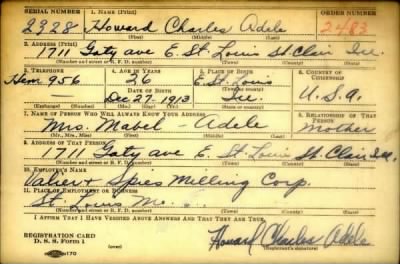 SERIAL NUMBER 1. NAME (Print) ORDER NUMBER
2328 Howard Charles Adele 2483
(First) (Middle) (Last)
2. ADDRESS (Print)
1711 Gaty ave E. St. Louis St. Clair Ill.
(Number and street or R. F. D. number) (Town) (County) (State)
3. TELEPHONE 4. AGE IN YEARS 5. PLACE OF BIRTH 6. COUNTRY OF CITIZENSHIP
26 E. St. Louis
956 DATE OF BIRTH (Town or county)
Dec 27 1913 Ill. U.S.A.
(Exchange) (Number) (Mo.) (Day) (Yr.) (State or country)
7. NAME OF PERSON WHO WILL ALWAYS KNOW YOUR ADDRESS 8. RELATIONSHIP OF THAT PERSON
Mrs. Mabel Adele Mother
(Mr., Mrs., Miss) (First) (Middle) (Last)
9. ADDRESS OF THAT PERSON
1711 Gaty ave E. St Louis St. Clair Ill.
(Number and street or R. F. D. number) (Town) (County) (State)
10. EMPLOYER'S NAME
Valier & Spies Milling Corp.
11. PLACE OF EMPLOYMENT OR BUSINESS
St. Louis Mo.
(Number and street or R. F. D. number) (Town) (County) (State)
I AFFIRM THAT I HAVE VERIFIED ABOVE ANSWERS AND THAT THEY ARE TRUE.
REGISTRATION CARD
D. S. S. Form 1 Howard Charles Adele
(Registrant's signature)